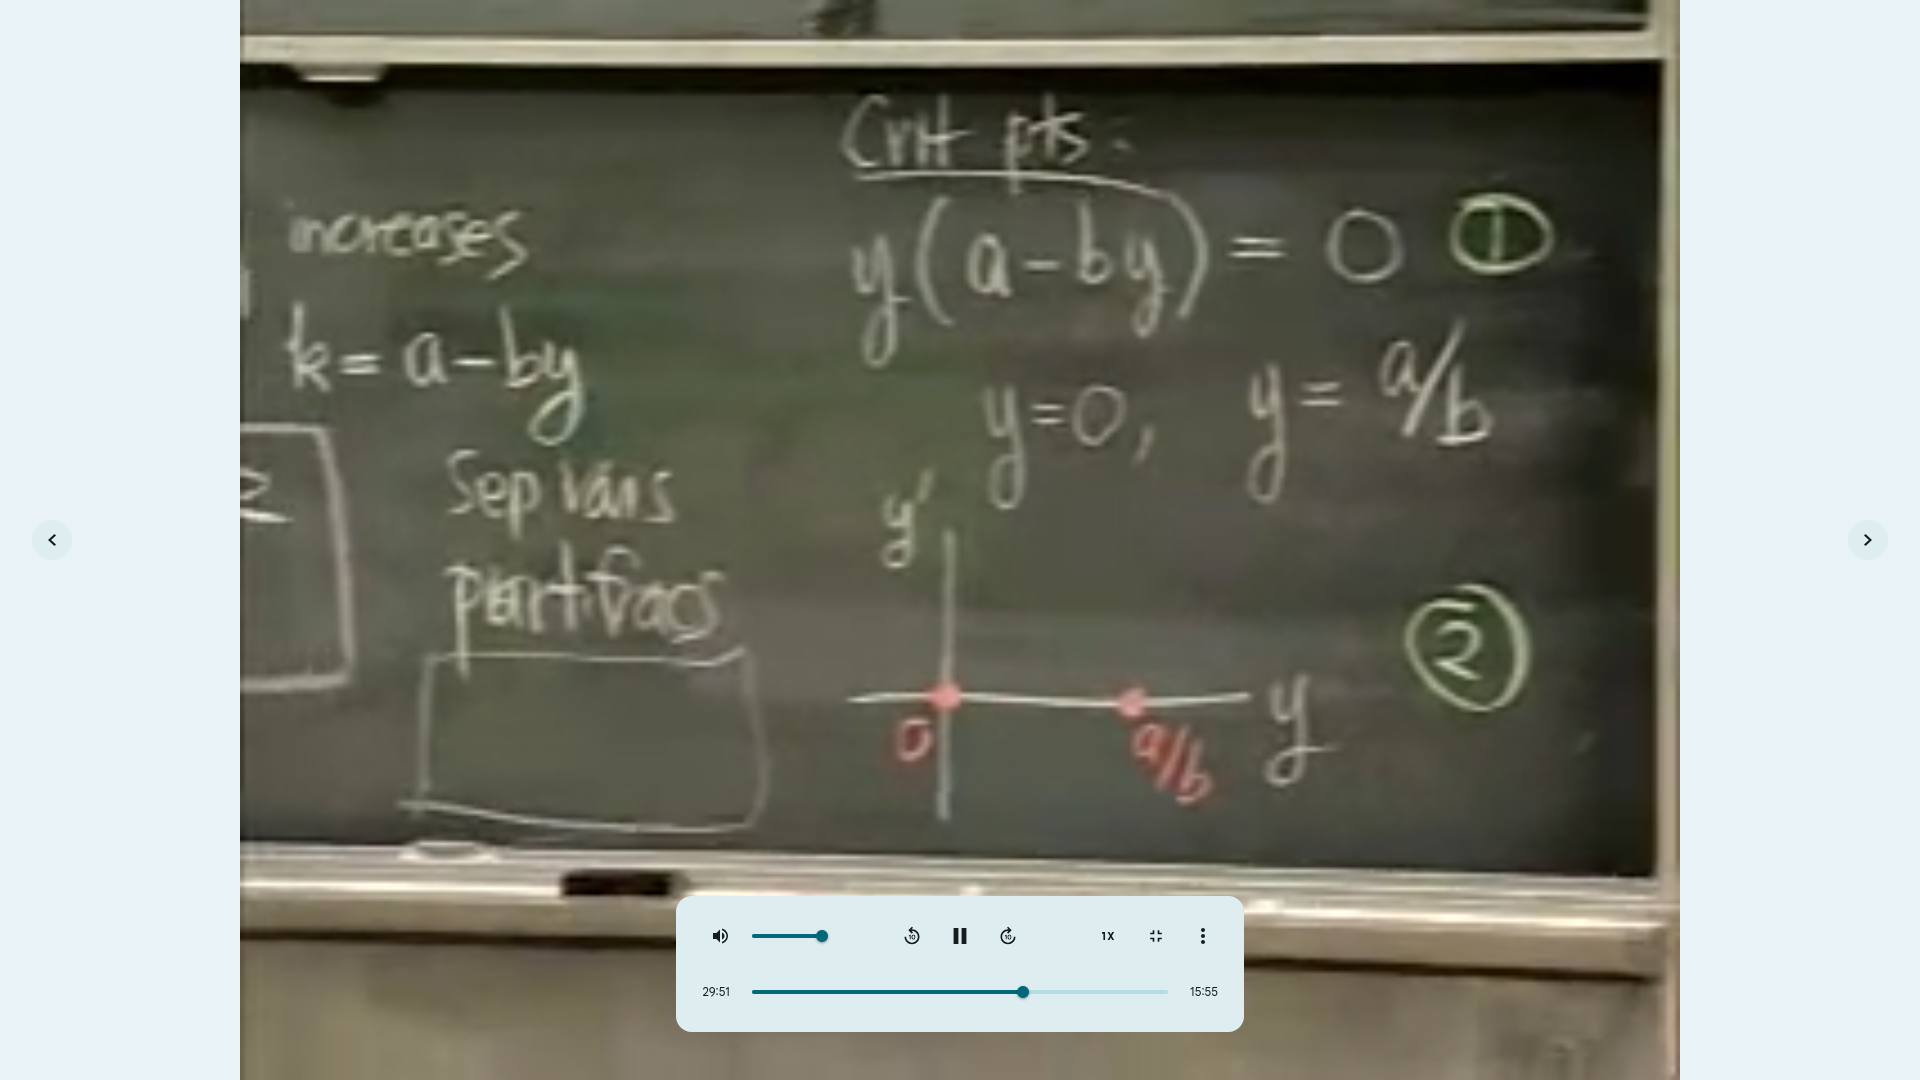 increases
k = a - by
2
Sep vars
part. fracs
Crit pts:
y(a - by) = 0 ①
y = 0, y = a/b
y'
②
y
0
a/b
1X
29:51
15:55